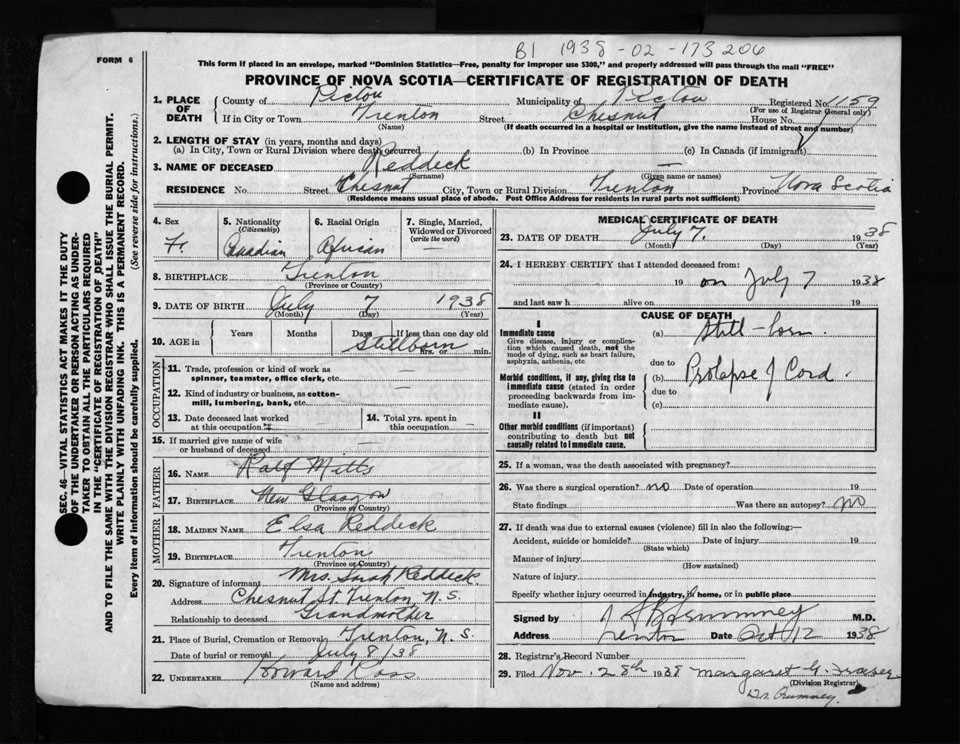 B1 1938-02-173206
FORM 6
This form if placed in an envelope, marked "Dominion Statistics—Free, penalty for improper use $300," and properly addressed will pass through the mail "FREE"
PROVINCE OF NOVA SCOTIA—CERTIFICATE OF REGISTRATION OF DEATH
1. PLACE OF DEATH County of Pictou Municipality of Pictou Registered No. 1159
(For use of Registrar General only)
If in City or Town Trenton Street Chesnut House No.
(Name) (If death occurred in a hospital or institution, give the name instead of street and number)
2. LENGTH OF STAY (in years, months and days)
(a) In City, Town or Rural Division where death occurred (b) In Province (c) In Canada (if immigrant)
3. NAME OF DECEASED Reddeck —
(Surname) (Given name or names)
RESIDENCE No. Street Chesnut City, Town or Rural Division Trenton Province Nova Scotia
(Residence means usual place of abode. Post Office Address for residents in rural parts not sufficient)
4. Sex 5. Nationality 6. Racial Origin 7. Single, Married, Widowed or Divorced
(Citizenship) (write the word)
F. Canadian African —
8. BIRTHPLACE Trenton
(Province or Country)
9. DATE OF BIRTH July 7 1938
(Month) (Day) (Year)
10. AGE in Years Months Days If less than one day old
Stillborn hrs. or min.
OCCUPATION
11. Trade, profession or kind of work as spinner, teamster, office clerk, etc. —
12. Kind of industry or business, as cotton-mill, lumbering, bank, etc. —
13. Date deceased last worked at this occupation — 14. Total yrs. spent in this occupation —
15. If married give name of wife or husband of deceased —
FATHER
16. NAME Ralf Mitts
17. BIRTHPLACE New Glasgow
(Province or Country)
MOTHER
18. MAIDEN NAME Elsa Reddeck
19. BIRTHPLACE Trenton
(Province or Country)
20. Signature of informant Mrs. Sarah Reddeck.
Address Chesnut St. Trenton, N.S.
Relationship to deceased Grandmother
21. Place of Burial, Cremation or Removal Trenton, N.S.
Date of burial or removal July 8/38
22. UNDERTAKER Howard Ross
(Name and address)
MEDICAL CERTIFICATE OF DEATH
23. DATE OF DEATH July 7. 1938
(Month) (Day) (Year)
24. I HEREBY CERTIFY that I attended deceased from:
19 on July 7 1938
and last saw h alive on 19
CAUSE OF DEATH
I
Immediate cause (a) Still-born.
Give disease, injury or complication which caused death, not the mode of dying, such as heart failure, asphyxia, asthenia, etc.
due to
Morbid conditions, if any, giving rise to immediate cause (stated in order proceeding backwards from immediate cause). (b) Prolapse of Cord.
due to
(c)
II
Other morbid conditions (if important) contributing to death but not causally related to immediate cause.
25. If a woman, was the death associated with pregnancy?
26. Was there a surgical operation? no Date of operation 19
State findings Was there an autopsy? no
27. If death was due to external causes (violence) fill in also the following:—
Accident, suicide or homicide? Date of injury 19
(State which)
Manner of injury
(How sustained)
Nature of injury
Specify whether injury occurred in industry, in home, or in public place
Signed by M.D.
Address Trenton Date Oct 12 1938
28. Registrar's Record Number
29. Filed Nov. 28th 1938 Margaret G. Fraser
(Division Registrar)
Dr. Prumney.
SEC. 46—VITAL STATISTICS ACT MAKES IT THE DUTY OF THE UNDERTAKER OR PERSON ACTING AS UNDERTAKER TO OBTAIN ALL THE PARTICULARS REQUIRED IN THE "CERTIFICATE OF REGISTRATION OF DEATH" AND TO FILE THE SAME WITH THE DIVISION REGISTRAR WHO SHALL ISSUE THE BURIAL PERMIT.
WRITE PLAINLY WITH UNFADING INK. THIS IS A PERMANENT RECORD.
Every item of information should be carefully supplied. (See reverse side for instructions.)